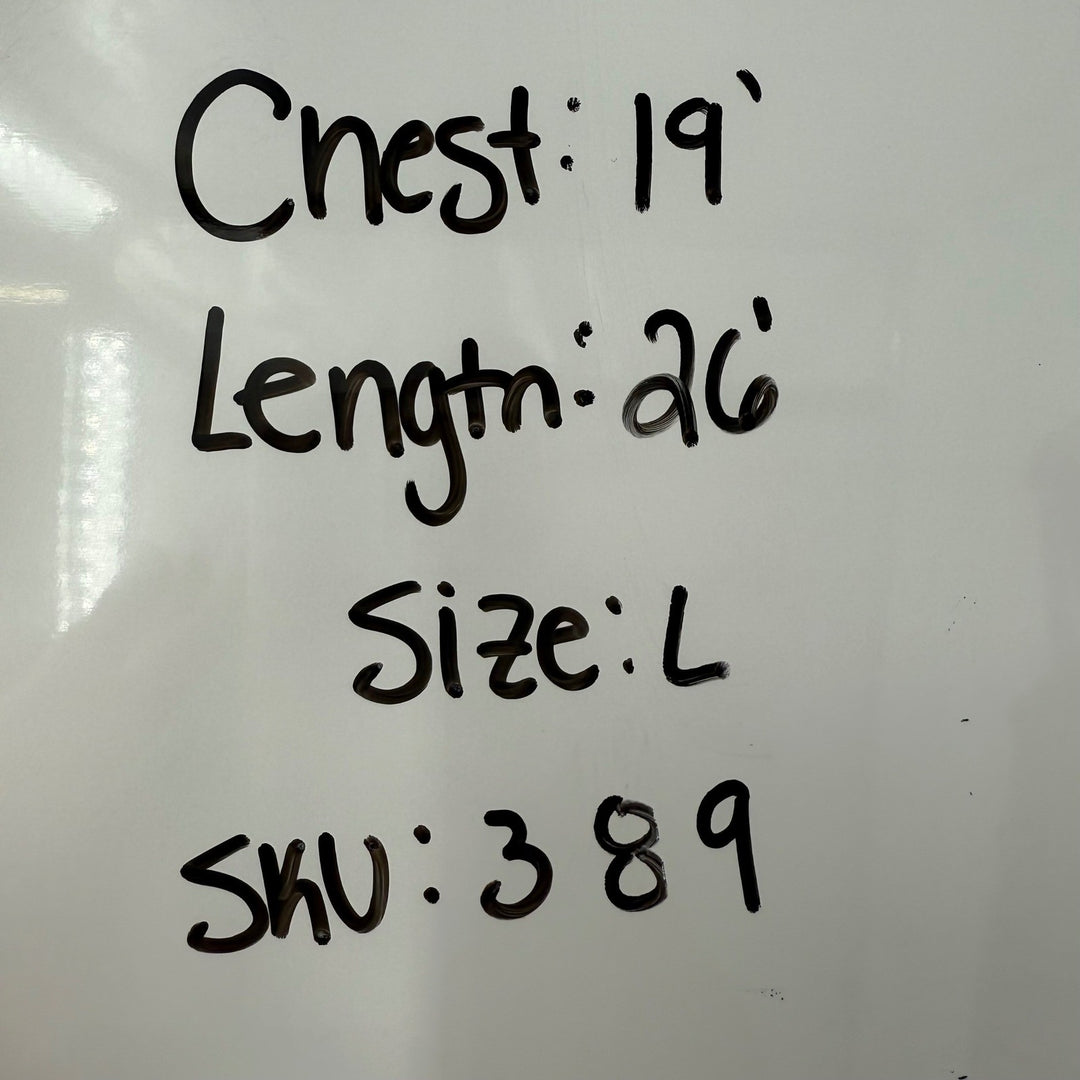 Chest: 19'
Length: 26'
Size: L
SKU: 389